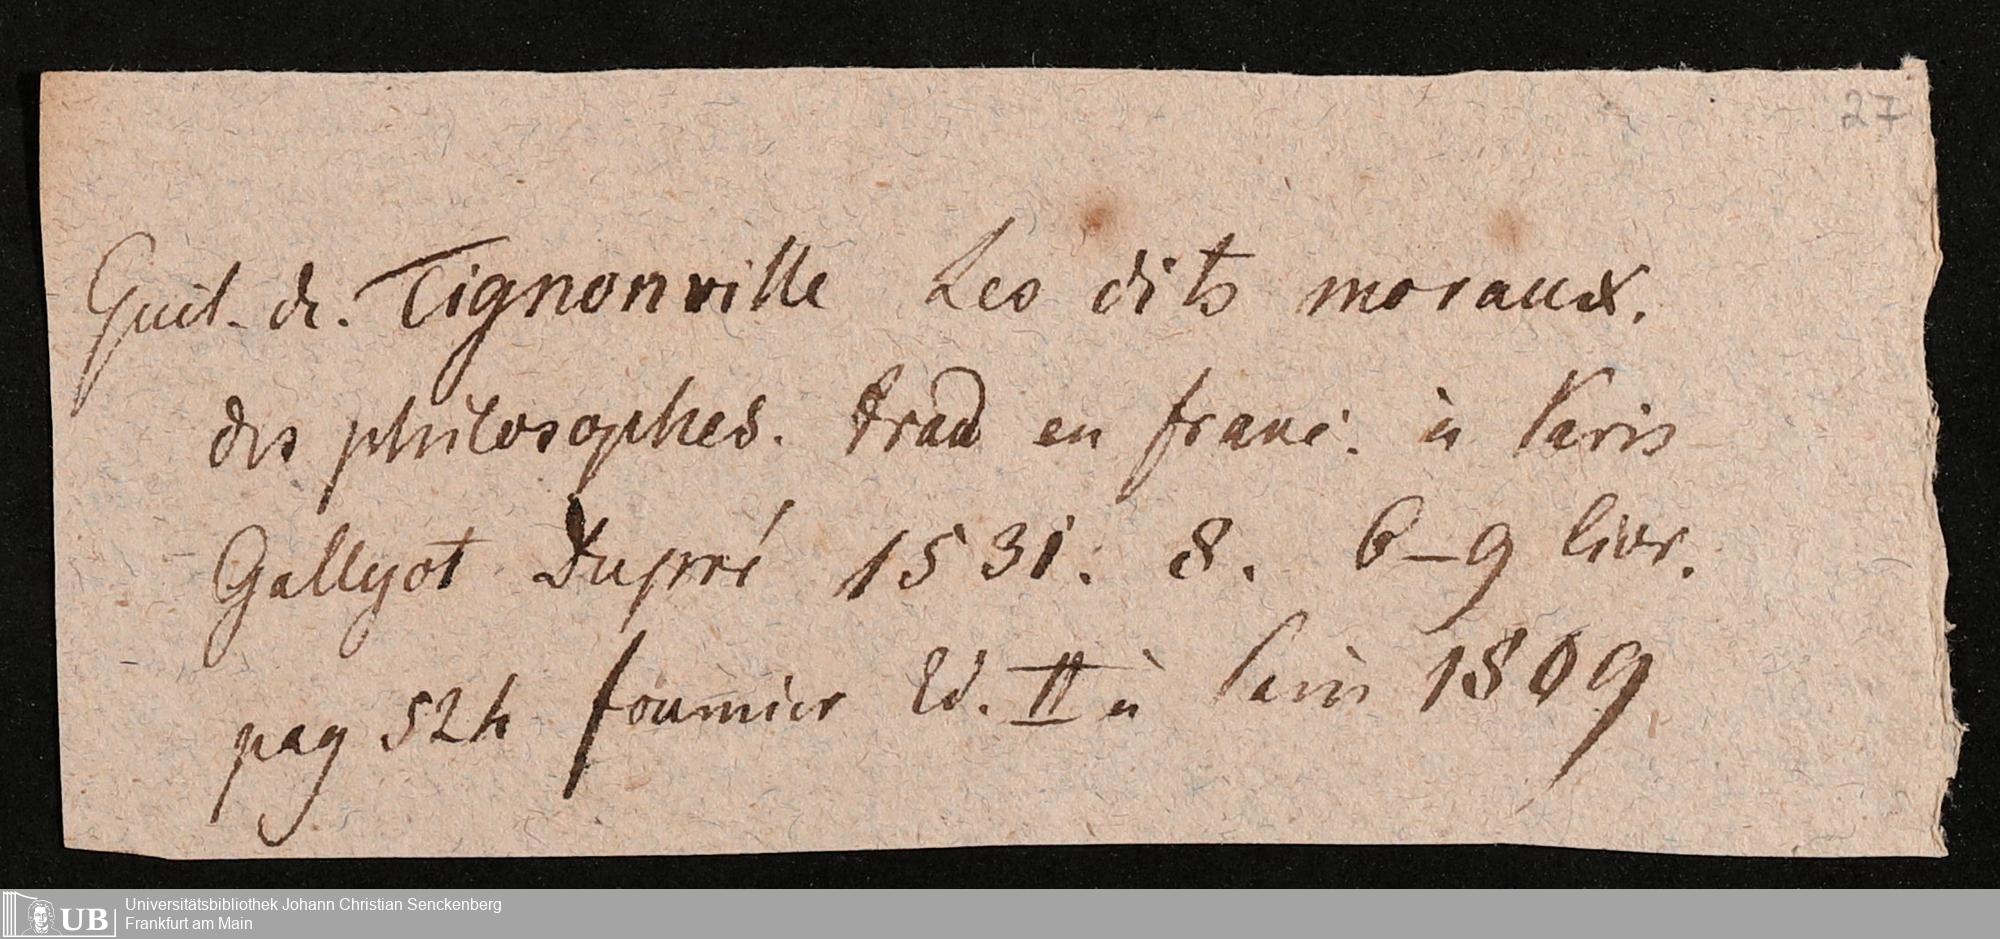 27
Guil. de. Tignonville Les dits moraux.
des philosophes. trad en franc. à Paris
Gallyot Dupré 1531. 8. 6-9 livr.
pag 524 fournier Ed. II à Paris 1809
UB Universitätsbibliothek Johann Christian Senckenberg
Frankfurt am Main